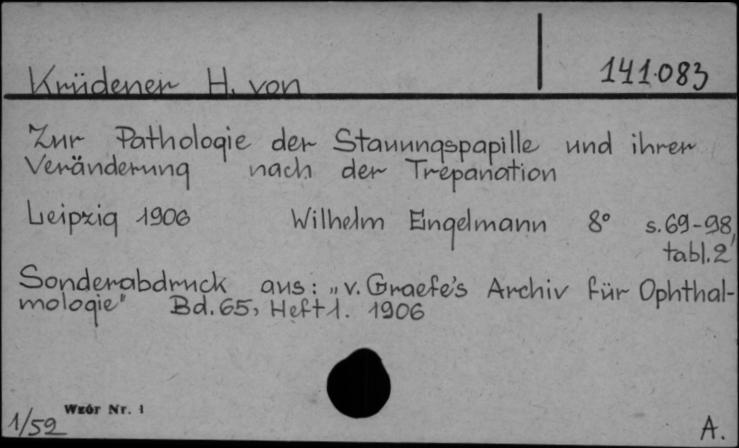 Krüdener H. von
141083
Zur Pathologie der Stauungspapille und ihrer
Veränderung nach der Trepanation
Leipzig 1906 Wilhelm Engelmann 8° s. 69-98,
tabl. 2
Sonderabdruck aus: „v. Graefe's Archiv für Ophthal-
mologie" Bd. 65, Heft 1. 1906
Wzór Nr. 1
1/52
A.